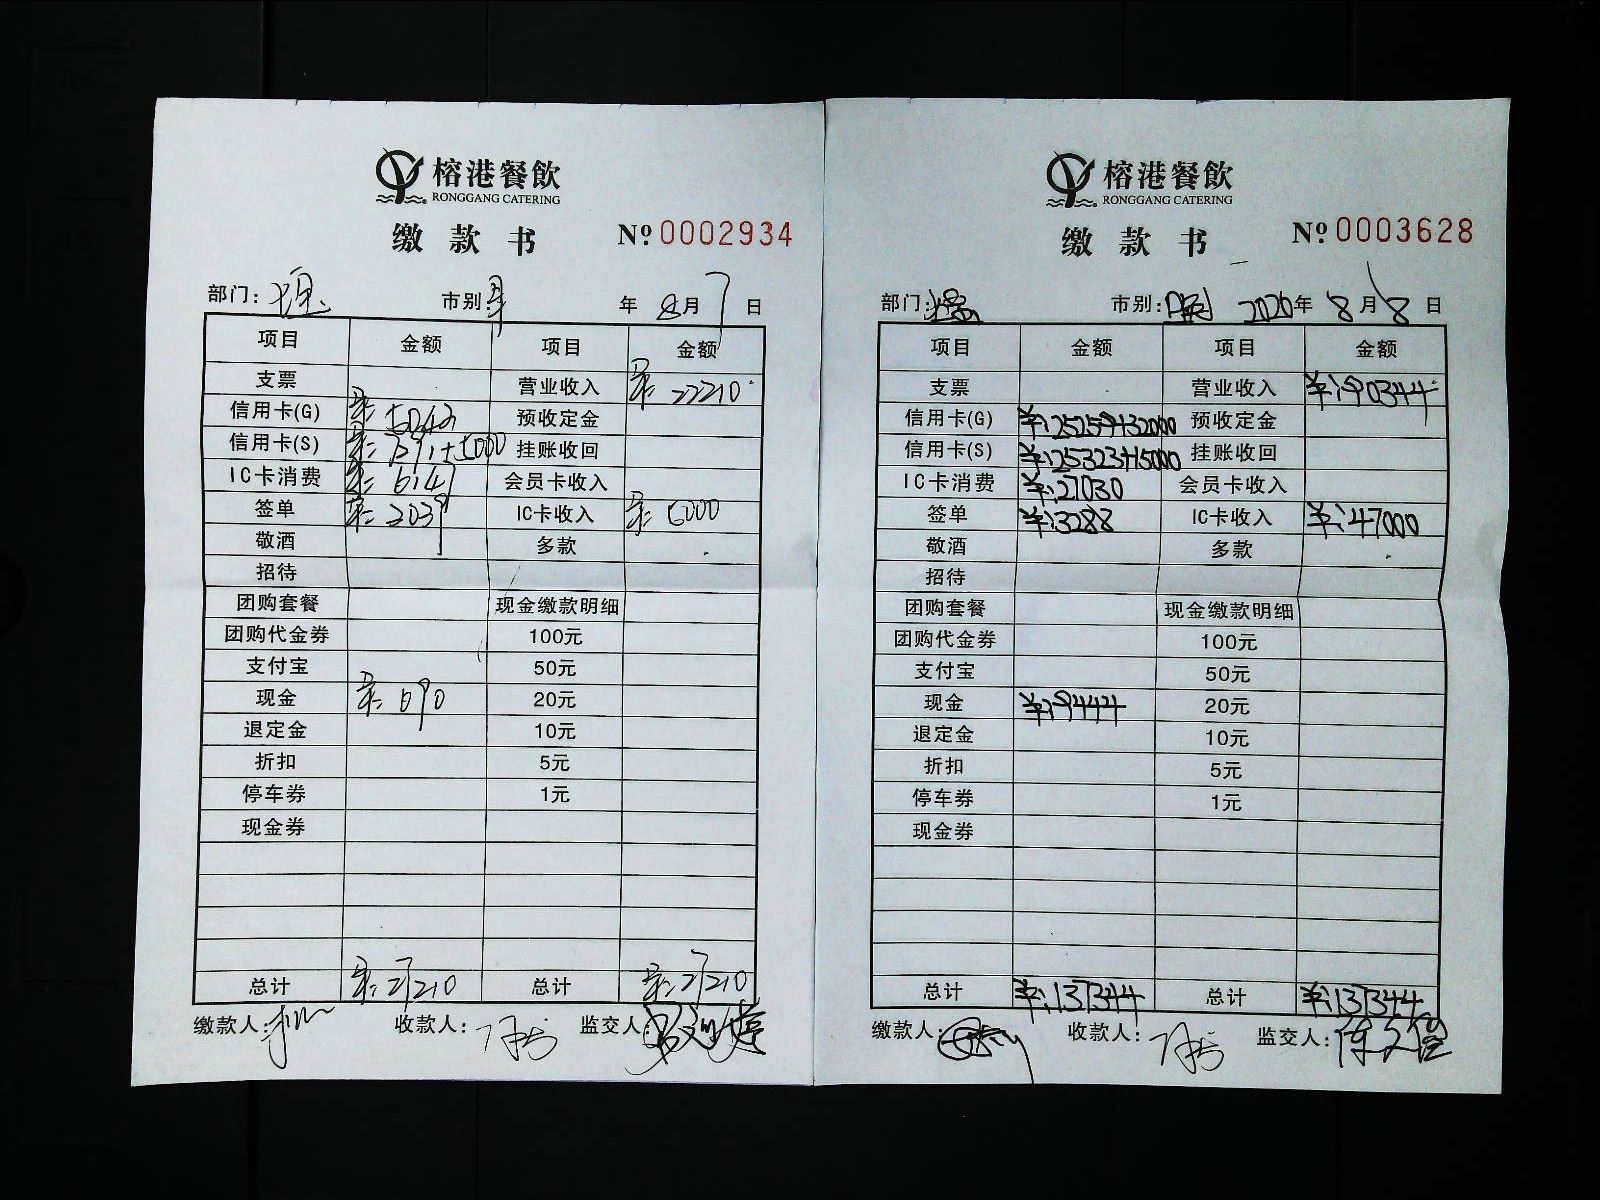 榕港餐飲
RONGGANG CATERING
缴款书
№ 0002934
部门: 市别: 年 8月7日
项目 金额 项目 金额
支票 营业收入 22210
信用卡(G) 预收定金
信用卡(S) 挂账收回
IC卡消费 6147 会员卡收入
签单 2039 IC卡收入 5000
敬酒 多款
招待
团购套餐 现金缴款明细
团购代金券 100元
支付宝 50元
现金 690 20元
退定金 10元
折扣 5元
停车券 1元
现金券
总计 27210 总计 27210
缴款人: 收款人: 监交人:
榕港餐飲
RONGGANG CATERING
缴款书
№ 0003628
部门: 市别: 晚 2020年 8月8日
项目 金额 项目 金额
支票 营业收入 ¥:90344
信用卡(G) ¥:25259+32000 预收定金
信用卡(S) ¥:25323+15000 挂账收回
IC卡消费 ¥:27030 会员卡收入
签单 ¥:3288 IC卡收入 ¥:47000
敬酒 多款
招待
团购套餐 现金缴款明细
团购代金券 100元
支付宝 50元
现金 ¥:9444 20元
退定金 10元
折扣 5元
停车券 1元
现金券
总计 ¥:137344 总计 ¥:137344
缴款人: 收款人: 监交人: